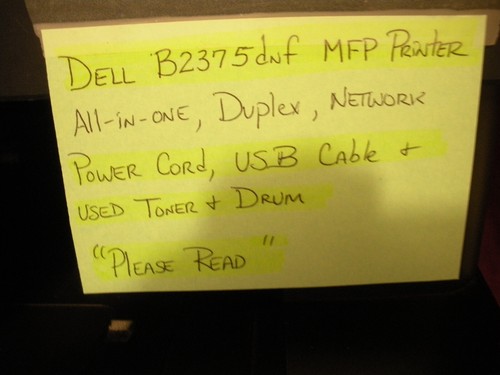 Dell B2375dnf MFP Printer
All-in-one, Duplex, Network
Power Cord, USB Cable +
used Toner + Drum
"Please Read"